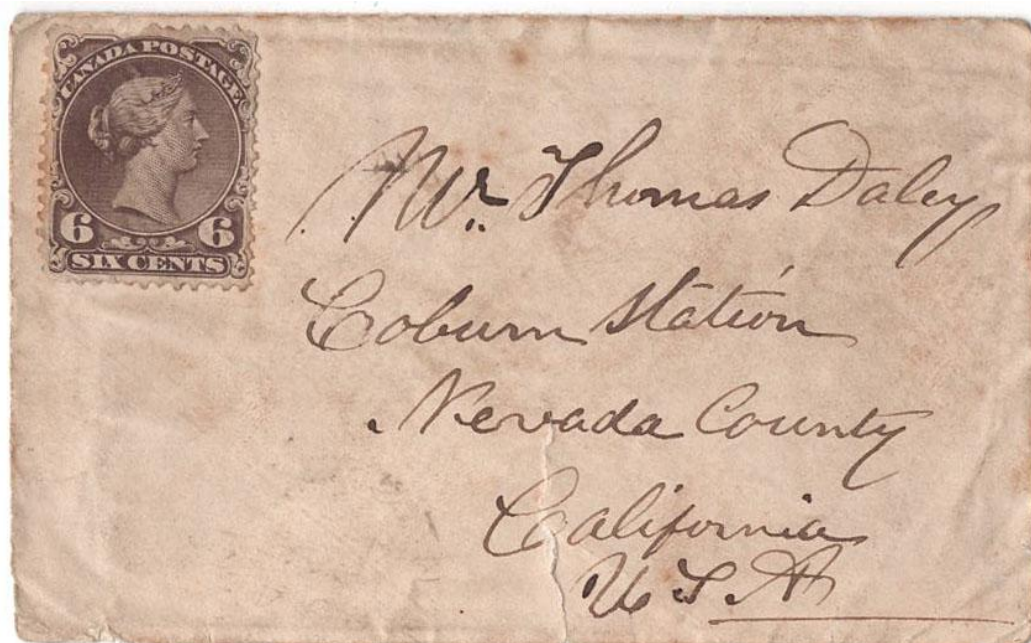 CANADA POSTAGE
6 6
SIX CENTS
Mr. Thomas Daley
Coburn Station
Nevada County
California
U S A